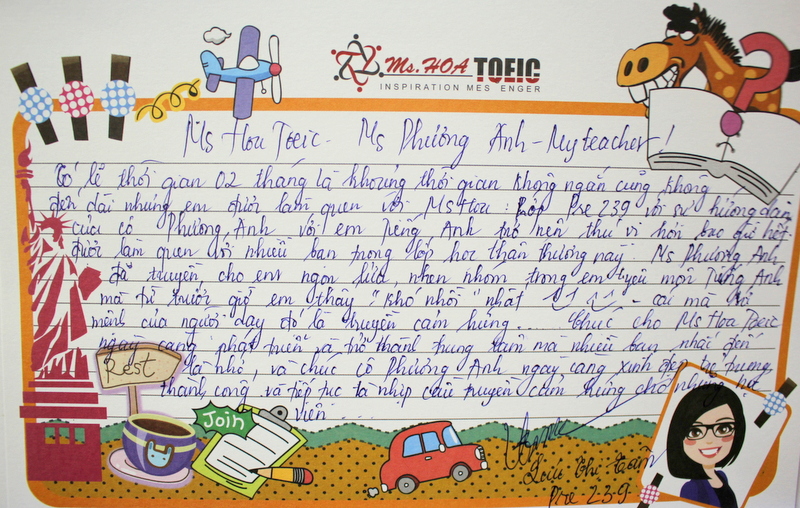 Ms. HOA TOEIC
INSPIRATION MES ENGER
Ms Hoa Toeic - Ms Phương Anh - My teacher!
Có lẽ thời gian 02 tháng là khoảng thời gian không ngắn cũng không
đến dài nhưng em được làm quen với Ms Hoa: Lớp Pre 239 với sự hướng dẫn
của cô Phương Anh với em Tiếng Anh trở nên thú vị hơn bao giờ hết
được làm quen với nhiều bạn trong lớp học thân thương này. Ms Phương Anh
đã truyền cho em ngọn lửa nhen nhóm trong em yêu môn Tiếng Anh
mà từ trước giờ em thấy "khó nhồi" nhất - cái mà
mệnh của người dạy đó là truyền cảm hứng... Chúc cho Ms Hoa Toeic
ngày càng phát triển và trở thành trung tâm mà nhiều bạn nhắc đến
là nhớ, và chúc cô Phương Anh ngày càng xinh đẹp trẻ trung
thành công và tiếp tục là nhịp cầu truyền cảm hứng cho những học
viên...
Rest
Join
Pre-239